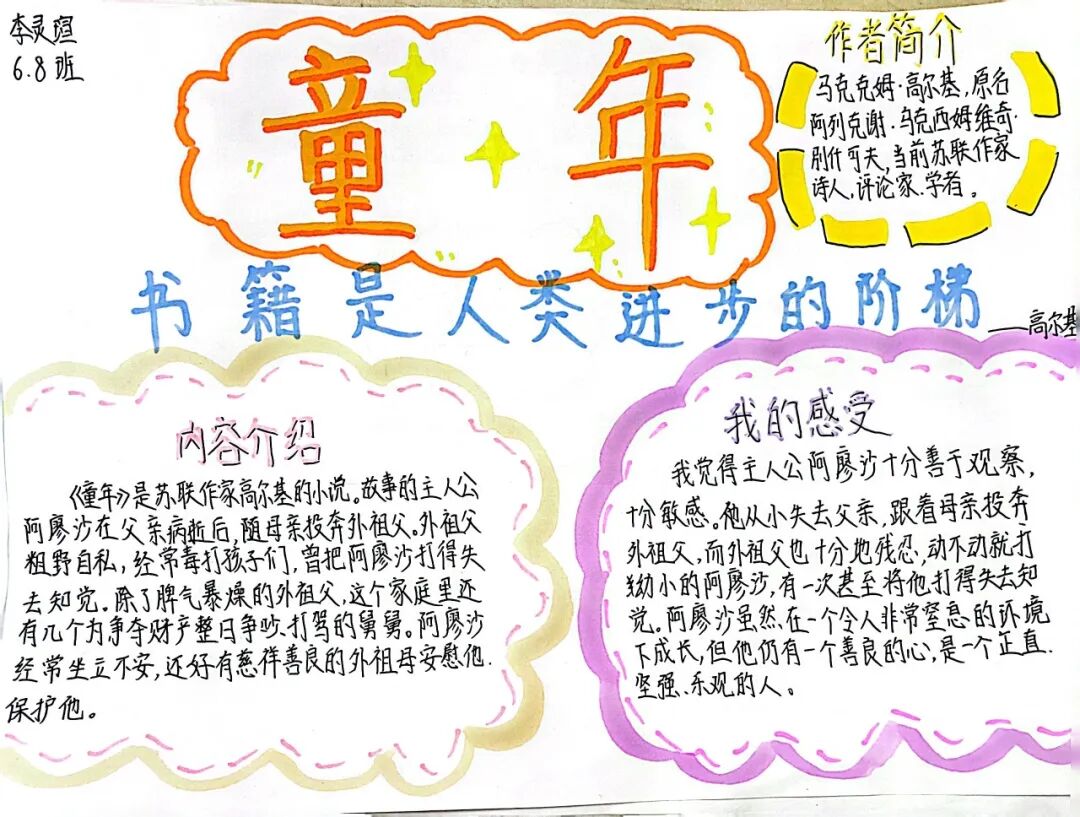 李灵瑄
6.8班
童年
作者简介
马克克姆·高尔基,原名
阿列克谢·马克西姆维奇·
别什可夫,当前苏联作家
诗人,评论家、学者。
书籍是人类进步的阶梯
——高尔基
内容介绍
《童年》是苏联作家高尔基的小说。故事的主人公
阿廖沙在父亲病逝后,随母亲投奔外祖父。外祖父
粗野自私,经常毒打孩子们,曾把阿廖沙打得失
去知觉。除了脾气暴燥的外祖父,这个家庭里还
有几个为争夺财产整日争吵、打骂的舅舅。阿廖沙
经常坐立不安,还好有慈祥善良的外祖母安慰他.
保护他。
我的感受
我觉得主人公阿廖沙十分善于观察,
十分敏感。他从小失去父亲,跟着母亲投奔
外祖父,而外祖父也十分地残忍,动不动就打
幼小的阿廖沙,有一次甚至将他打得失去知
觉。阿廖沙虽然、在一个令人非常窒息的环境
下成长,但他仍有一个善良的心,是一个正直.
坚强、乐观的人。